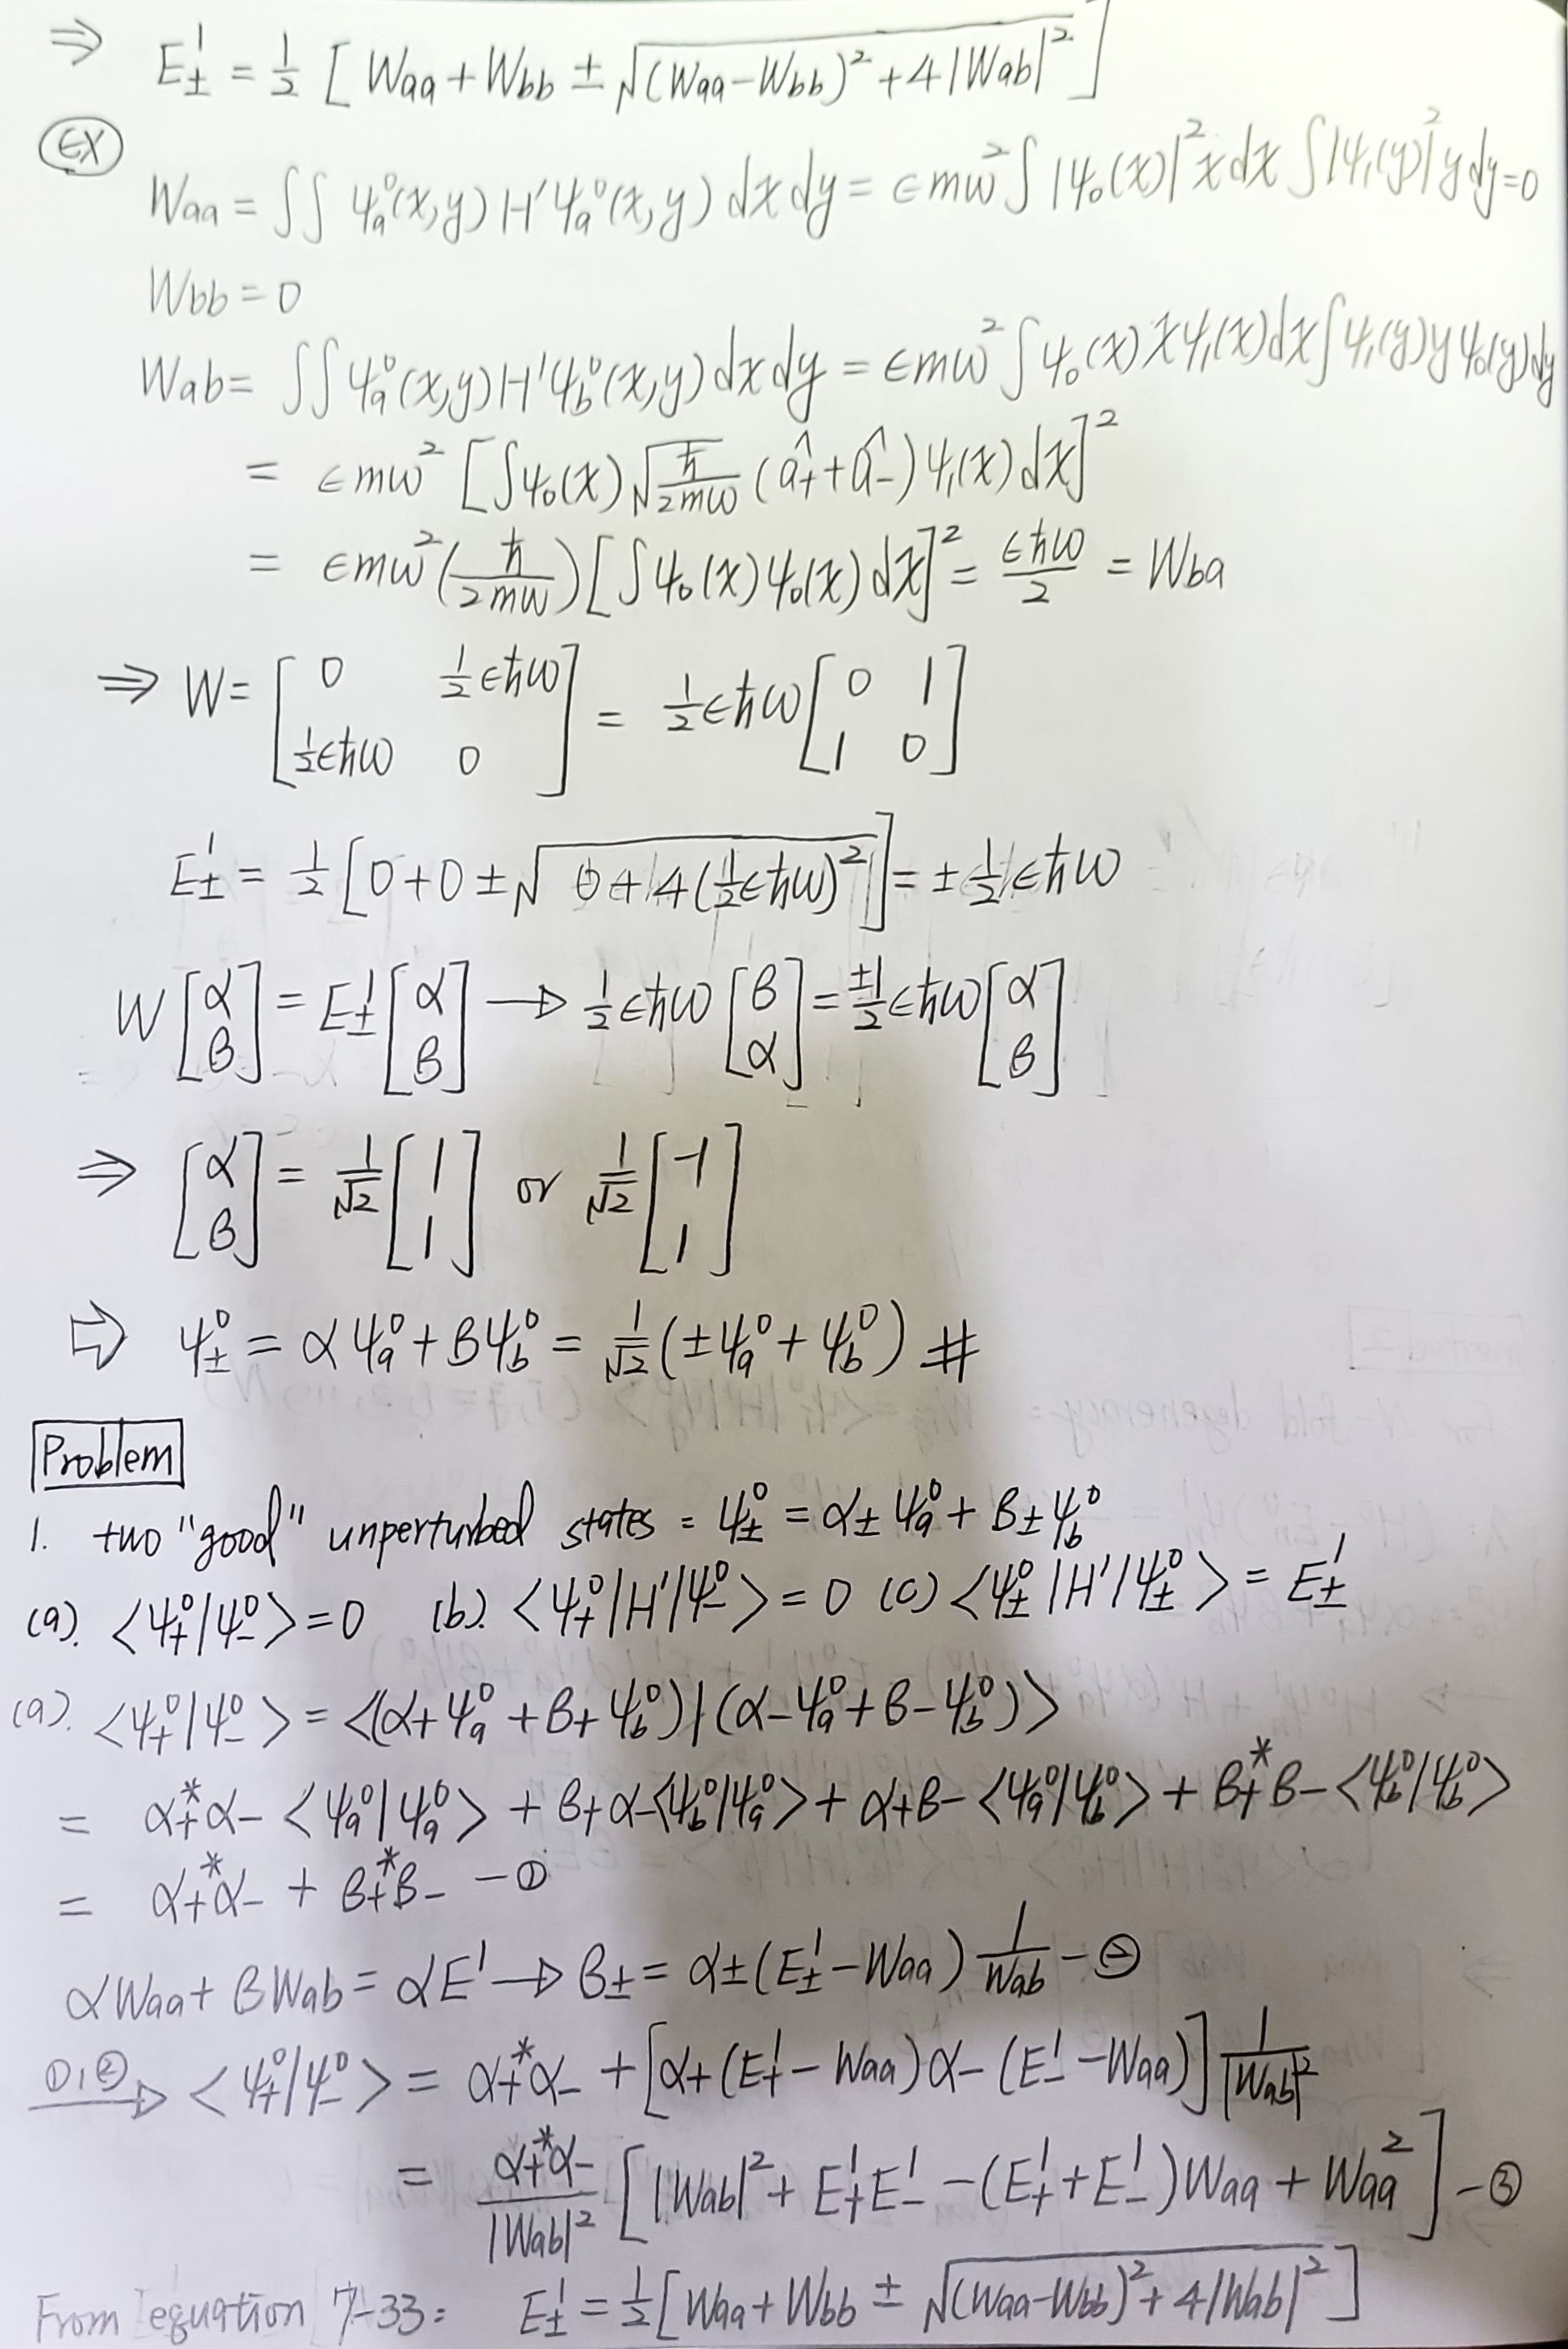 ⇒ E±¹ = 1/2 [Waa + Wbb ± √((Waa-Wbb)² + 4|Wab|²)]
EX Waa = ∫∫ ψa⁰(x,y) H' ψa⁰(x,y) dx dy = ϵmω² ∫|ψ₀(x)|² x dx ∫|ψ₁(y)|² y dy = 0
Wbb = 0
Wab = ∫∫ ψa⁰(x,y) H' ψb⁰(x,y) dx dy = ϵmω² ∫ψ₀(x) x ψ₁(x) dx ∫ψ₁(y) y ψ₀(y) dy
= ϵmω² [∫ψ₀(x) √(ħ/2mω) (â₊ + â₋) ψ₁(x) dx]²
= ϵmω² (ħ/2mω) [∫ψ₀(x) ψ₀(x) dx]² = ϵħω/2 = Wba
⇒ W = [0 1/2 ϵħω; 1/2 ϵħω 0] = 1/2 ϵħω [0 1; 1 0]
E±¹ = 1/2 [0 + 0 ± √(0 + 4(1/2 ϵħω)²)] = ± 1/2 ϵħω
W [α; β] = E±¹ [α; β] → 1/2 ϵħω [β; α] = ±1/2 ϵħω [α; β]
⇒ [α; β] = 1/√2 [1; 1] or 1/√2 [-1; 1]
⇨ ψ±⁰ = αψa⁰ + βψb⁰ = 1/√2 (±ψa⁰ + ψb⁰) #
Problem
1. two "good" unperturbed states = ψ±⁰ = α± ψa⁰ + β± ψb⁰
(a). <ψ₊⁰|ψ₋⁰> = 0 (b). <ψ₊⁰|H'|ψ₋⁰> = 0 (c) <ψ±⁰|H'|ψ±⁰> = E±¹
(a). <ψ₊⁰|ψ₋⁰> = <(α₊ψa⁰ + β₊ψb⁰)|(α₋ψa⁰ + β₋ψb⁰)>
= α₊*α₋ <ψa⁰|ψa⁰> + β₊α₋<ψb⁰|ψa⁰> + α₊β₋ <ψa⁰|ψb⁰> + β₊*β₋ <ψb⁰|ψb⁰>
= α₊*α₋ + β₊*β₋ - ①
αWaa + βWab = αE¹ → β± = α±(E±¹ - Waa) 1/Wab - ②
①,② → <ψ₊⁰|ψ₋⁰> = α₊*α₋ + [α₊(E₊¹ - Waa) α₋ (E₋¹ - Waa)] 1/|Wab|²
= α₊*α₋/|Wab|² [|Wab|² + E₊¹E₋¹ - (E₊¹ + E₋¹)Waa + Waa²] - ③
From equation 7-33: E±¹ = 1/2 [Waa + Wbb ± √((Waa-Wbb)² + 4|Wab|²)]